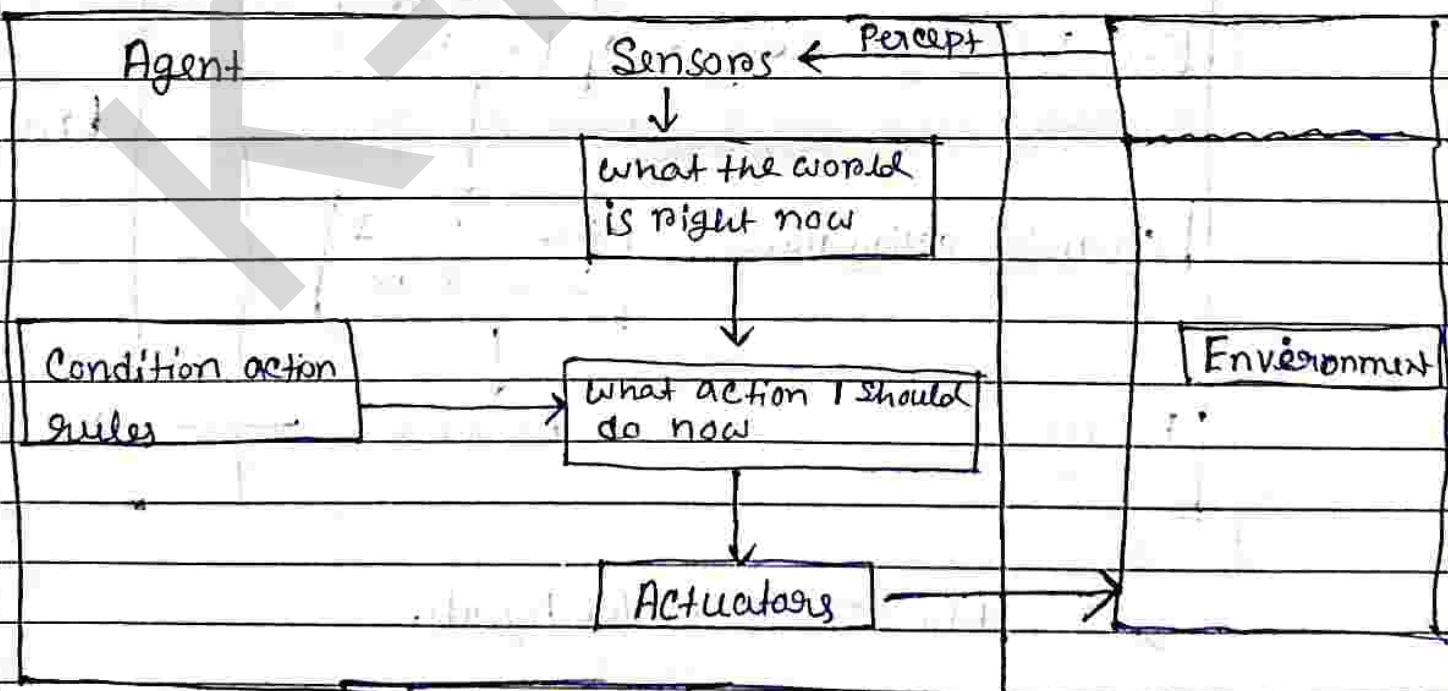 Agent
Sensors
Percept
what the world
is right now
Condition action
rules
what action I should
do now
Environment
Actuators